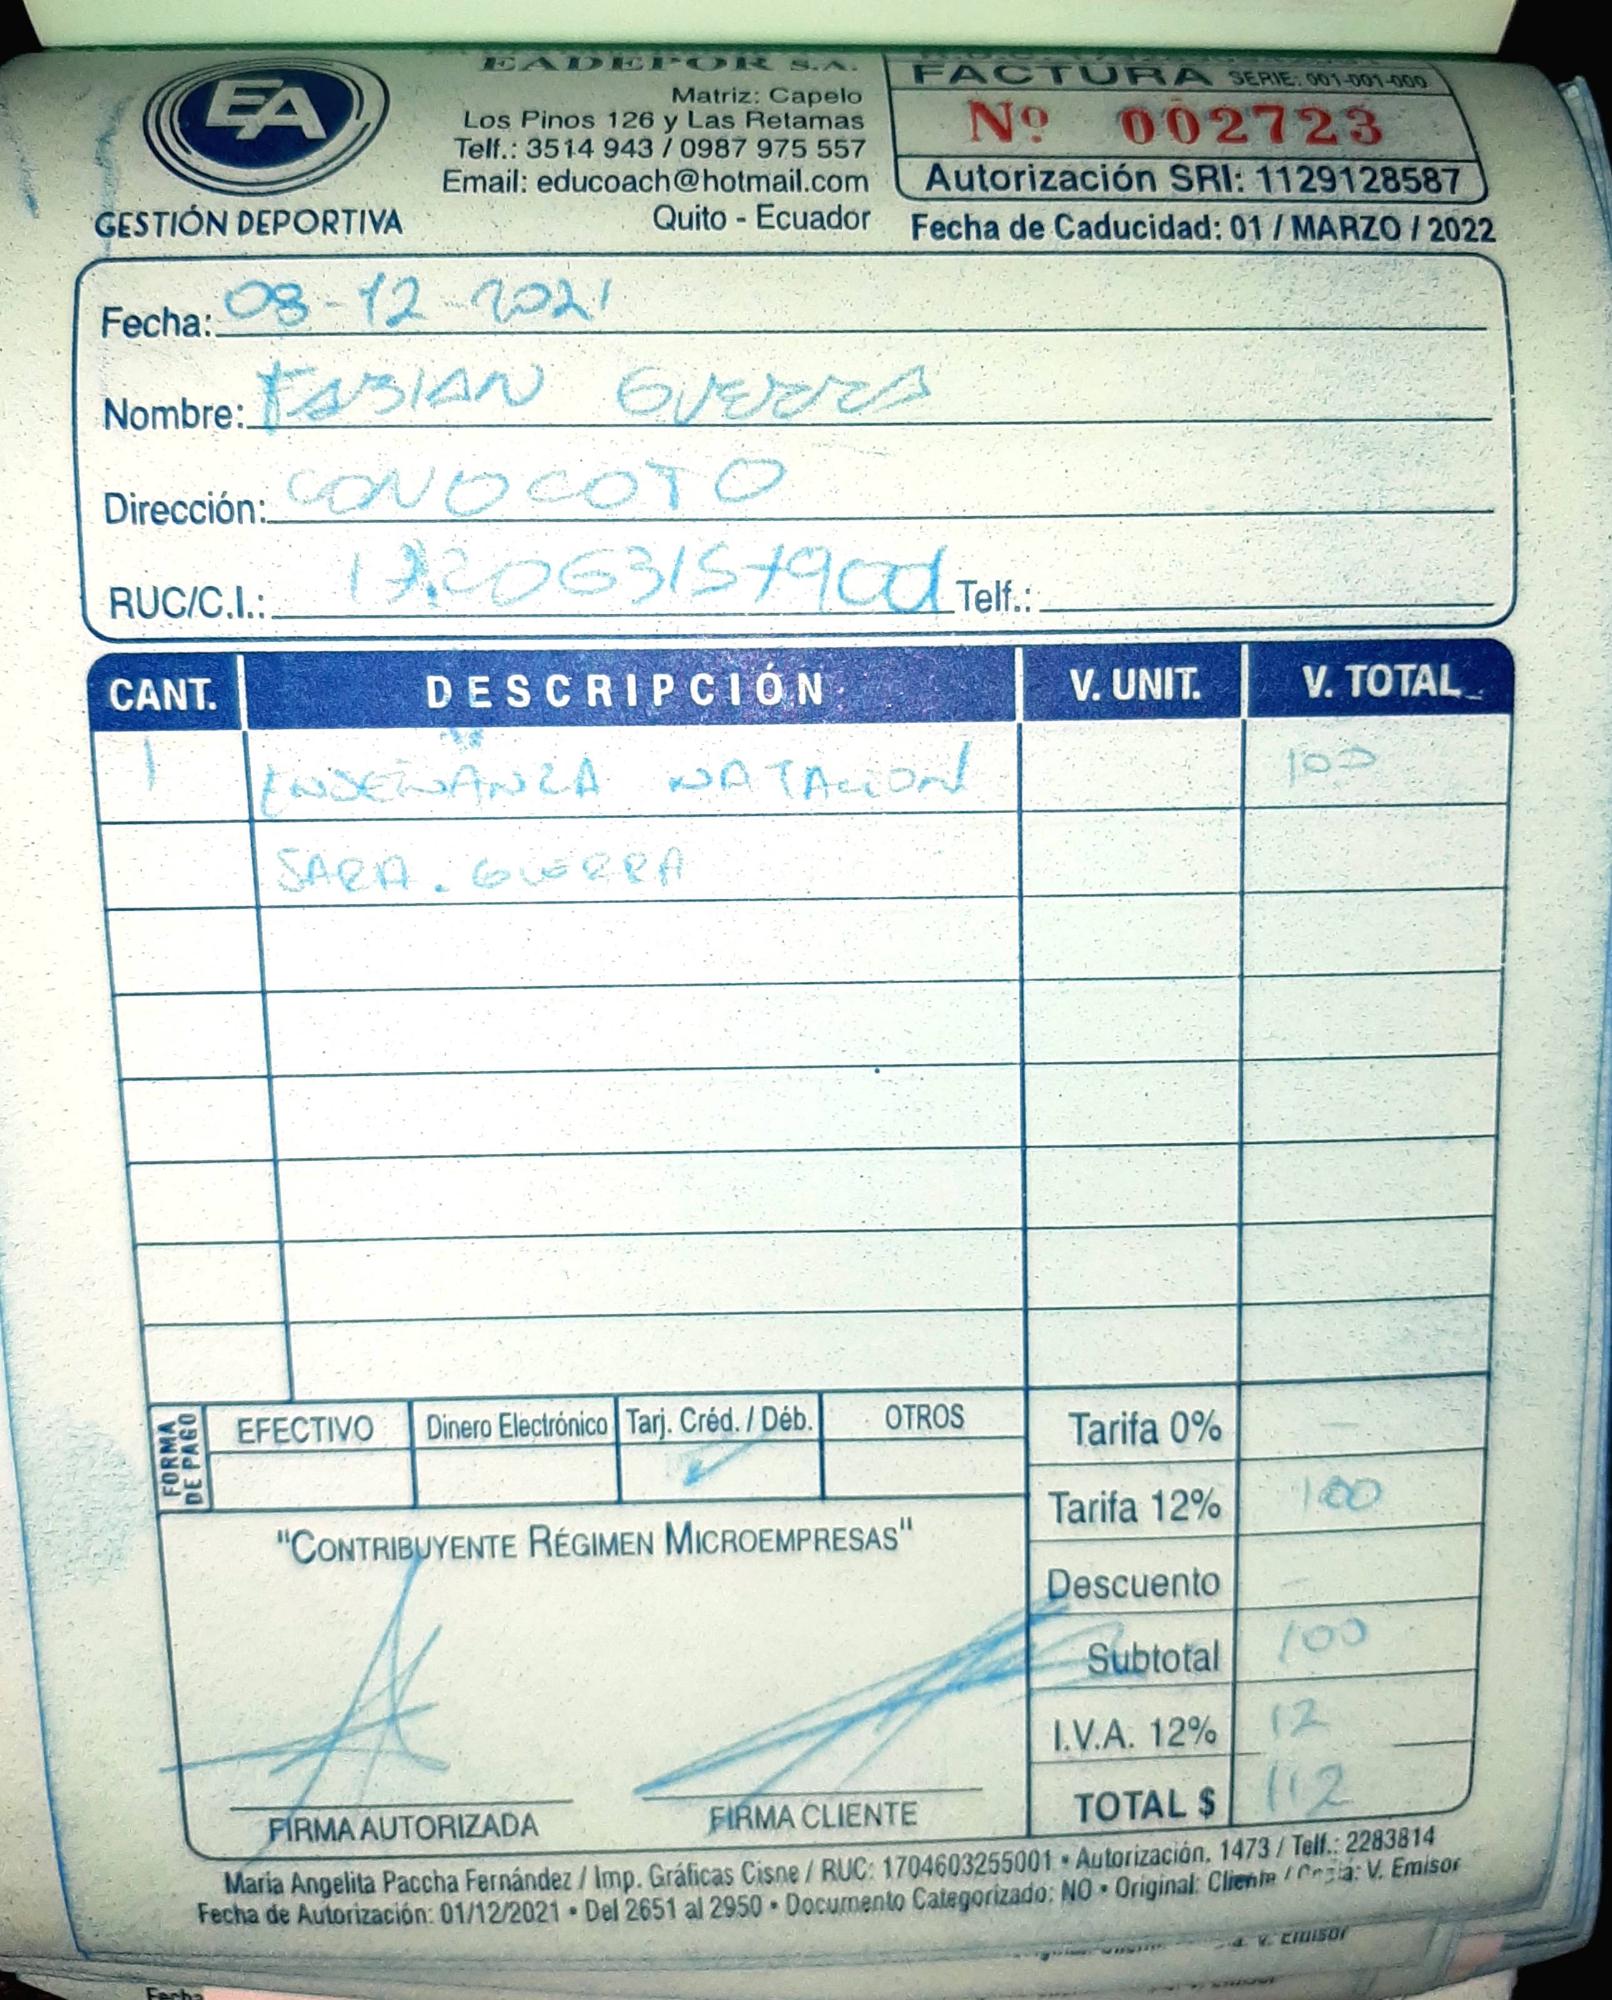 EADEPOR S.A.
EA
GESTIÓN DEPORTIVA
Matriz: Capelo
Los Pinos 126 y Las Retamas
Telf.: 3514 943 / 0987 975 557
Email: educoach@hotmail.com
Quito - Ecuador
FACTURA SERIE: 001-001-000
Nº 002723
Autorización SRI: 1129128587
Fecha de Caducidad: 01 / MARZO / 2022
Fecha: 08-12-2021
Nombre: FABIAN GUERRA
Dirección: CONOCOTO
RUC/C.I.: Telf.:
CANT. DESCRIPCIÓN V. UNIT. V. TOTAL
1 ENSEÑANZA NATACION 100
SARA. GUERRA
FORMA DE PAGO
EFECTIVO Dinero Electrónico Tarj. Créd. / Déb. OTROS
✓
Tarifa 0% -
Tarifa 12% 100
Descuento -
Subtotal 100
I.V.A. 12% 12
TOTAL $ 112
"CONTRIBUYENTE RÉGIMEN MICROEMPRESAS"
FIRMA AUTORIZADA FIRMA CLIENTE
María Angelita Paccha Fernández / Imp. Gráficas Cisne / RUC: 1704603255001 • Autorización. 1473 / Telf.: 2283814
Fecha de Autorización: 01/12/2021 • Del 2651 al 2950 • Documento Categorizado: NO • Original: Cliente / Copia: V. Emisor
V. Emisor
Fecha